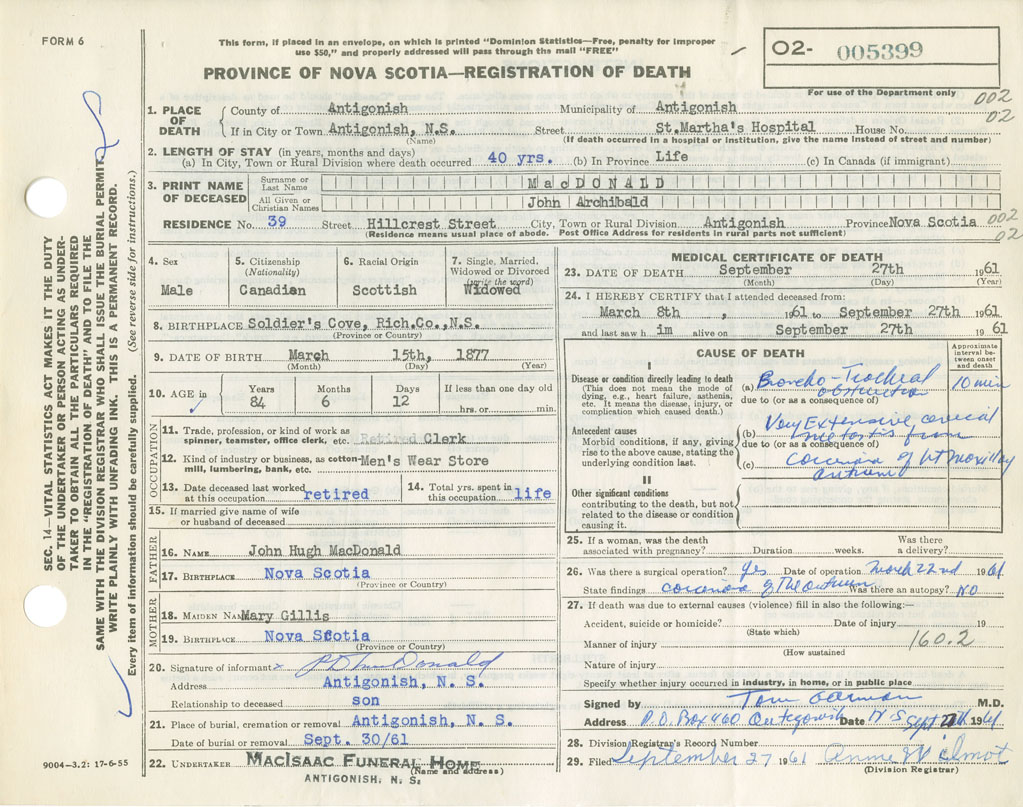 FORM 6
This form, if placed in an envelope, on which is printed "Dominion Statistics—Free, penalty for improper
use $50," and properly addressed will pass through the mail "FREE"
PROVINCE OF NOVA SCOTIA—REGISTRATION OF DEATH
02- 005399
For use of the Department only
002
02
1. PLACE OF DEATH County of Antigonish Municipality of Antigonish
If in City or Town Antigonish, N.S. Street St.Martha's Hospital House No.
(Name) (If death occurred in a hospital or institution, give the name instead of street and number)
2. LENGTH OF STAY (in years, months and days)
(a) In City, Town or Rural Division where death occurred 40 yrs. (b) In Province Life (c) In Canada (if immigrant)
3. PRINT NAME OF DECEASED
Surname or Last Name MacDONALD
All Given or Christian Names John Archibald
RESIDENCE No. 39 Street Hillcrest Street City, Town or Rural Division Antigonish Province Nova Scotia 002
(Residence means usual place of abode. Post Office Address for residents in rural parts not sufficient) 02
4. Sex
Male
5. Citizenship
(Nationality)
Canadian
6. Racial Origin
Scottish
7. Single, Married,
Widowed or Divorced
(write the word)
Widowed
8. BIRTHPLACE Soldier's Cove, Rich.Co.,N.S.
(Province or Country)
9. DATE OF BIRTH March 15th, 1877
(Month) (Day) (Year)
10. AGE in Years Months Days If less than one day old
84 6 12 hrs. or min.
OCCUPATION
11. Trade, profession, or kind of work as
spinner, teamster, office clerk, etc. Retired Clerk
12. Kind of industry or business, as cotton-
mill, lumbering, bank, etc. Men's Wear Store
13. Date deceased last worked
at this occupation retired
14. Total yrs. spent in
this occupation life
15. If married give name of wife
or husband of deceased
FATHER
16. NAME John Hugh MacDonald
17. BIRTHPLACE Nova Scotia
(Province or Country)
MOTHER
18. MAIDEN NAME Mary Gillis
19. BIRTHPLACE Nova Scotia
(Province or Country)
20. Signature of informant x MacDonald
Address Antigonish, N. S.
Relationship to deceased son
21. Place of burial, cremation or removal Antigonish, N. S.
Date of burial or removal Sept. 30/61
22. UNDERTAKER MACISAAC FUNERAL HOME
(Name and address)
ANTIGONISH, N. S.
9004—3.2: 17-6-55
MEDICAL CERTIFICATE OF DEATH
23. DATE OF DEATH September 27th 1961
(Month) (Day) (Year)
24. I HEREBY CERTIFY that I attended deceased from:
March 8th , 1961 to September 27th 1961
and last saw h im alive on September 27th 1961
CAUSE OF DEATH
Approximate interval between onset and death
I
Disease or condition directly leading to death
(This does not mean the mode of
dying, e.g., heart failure, asthenia,
etc. It means the disease, injury, or
complication which caused death.)
(a) Broncho-Tracheal obstruction 10 min
due to (or as a consequence of)
Antecedent causes
Morbid conditions, if any, giving
rise to the above cause, stating the
underlying condition last.
(b) Very Extensive cervical metastis from
due to (or as a consequence of)
(c) carcinoma of lt maxillary antrum
II
Other significant conditions
contributing to the death, but not
related to the disease or condition
causing it.
25. If a woman, was the death
associated with pregnancy? Duration weeks. Was there
a delivery?
26. Was there a surgical operation? Yes Date of operation March 22nd 1961
State findings carcinoma of the antrum Was there an autopsy? NO
27. If death was due to external causes (violence) fill in also the following:—
Accident, suicide or homicide? Date of injury 19
(State which)
Manner of injury 160.2
(How sustained
Nature of injury
Specify whether injury occurred in industry, in home, or in public place
Signed by Tom Gorman M.D.
Address P.O. Box 460 Antigonish N S Date Sept 27th 1961
28. Division Registrar's Record Number
29. Filed September 27 1961 Annie Wilmot
(Division Registrar)
SEC. 14—VITAL STATISTICS ACT MAKES IT THE DUTY
OF THE UNDERTAKER OR PERSON ACTING AS UNDER-
TAKER TO OBTAIN ALL THE PARTICULARS REQUIRED
IN THE "REGISTRATION OF DEATH" AND TO FILE THE
SAME WITH THE DIVISION REGISTRAR WHO SHALL ISSUE THE BURIAL PERMIT.
WRITE PLAINLY WITH UNFADING INK. THIS IS A PERMANENT RECORD.
Every item of information should be carefully supplied. (See reverse side for instructions.)